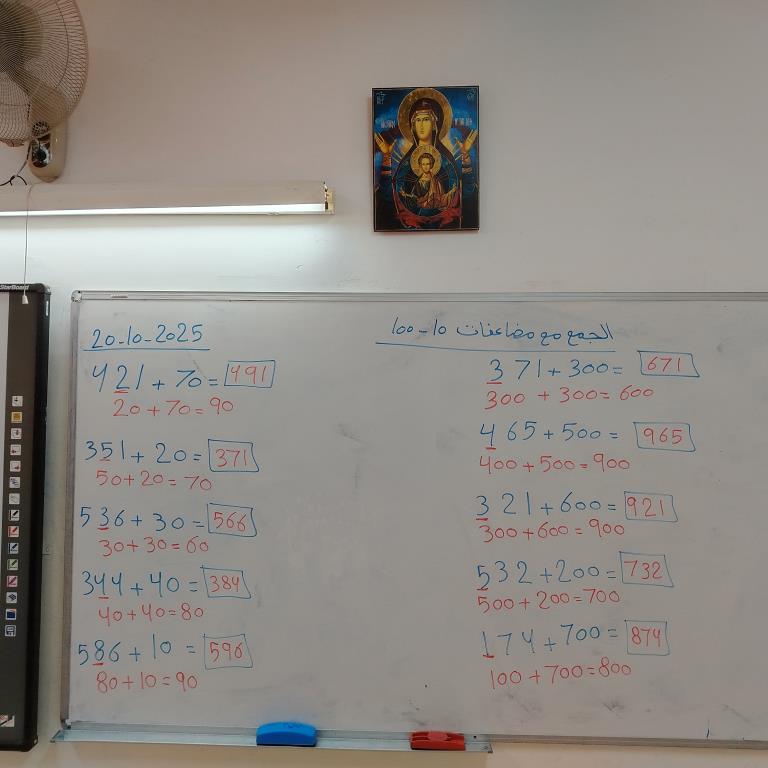 StarBoard
20-10-2025
421 + 70 = 491
20 + 70 = 90
351 + 20 = 371
50 + 20 = 70
536 + 30 = 566
30 + 30 = 60
344 + 40 = 384
40 + 40 = 80
586 + 10 = 596
80 + 10 = 90
الجمع مع مضاعفات 10-100
371 + 300 = 671
300 + 300 = 600
465 + 500 = 965
400 + 500 = 900
321 + 600 = 921
300 + 600 = 900
532 + 200 = 732
500 + 200 = 700
174 + 700 = 874
100 + 700 = 800